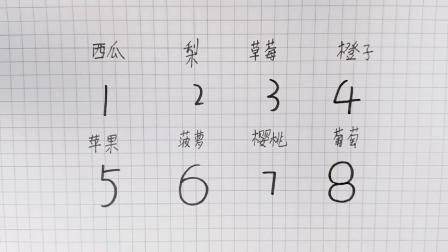 西瓜 梨 草莓 橙子
1 2 3 4
苹果 菠萝 樱桃 葡萄
5 6 7 8